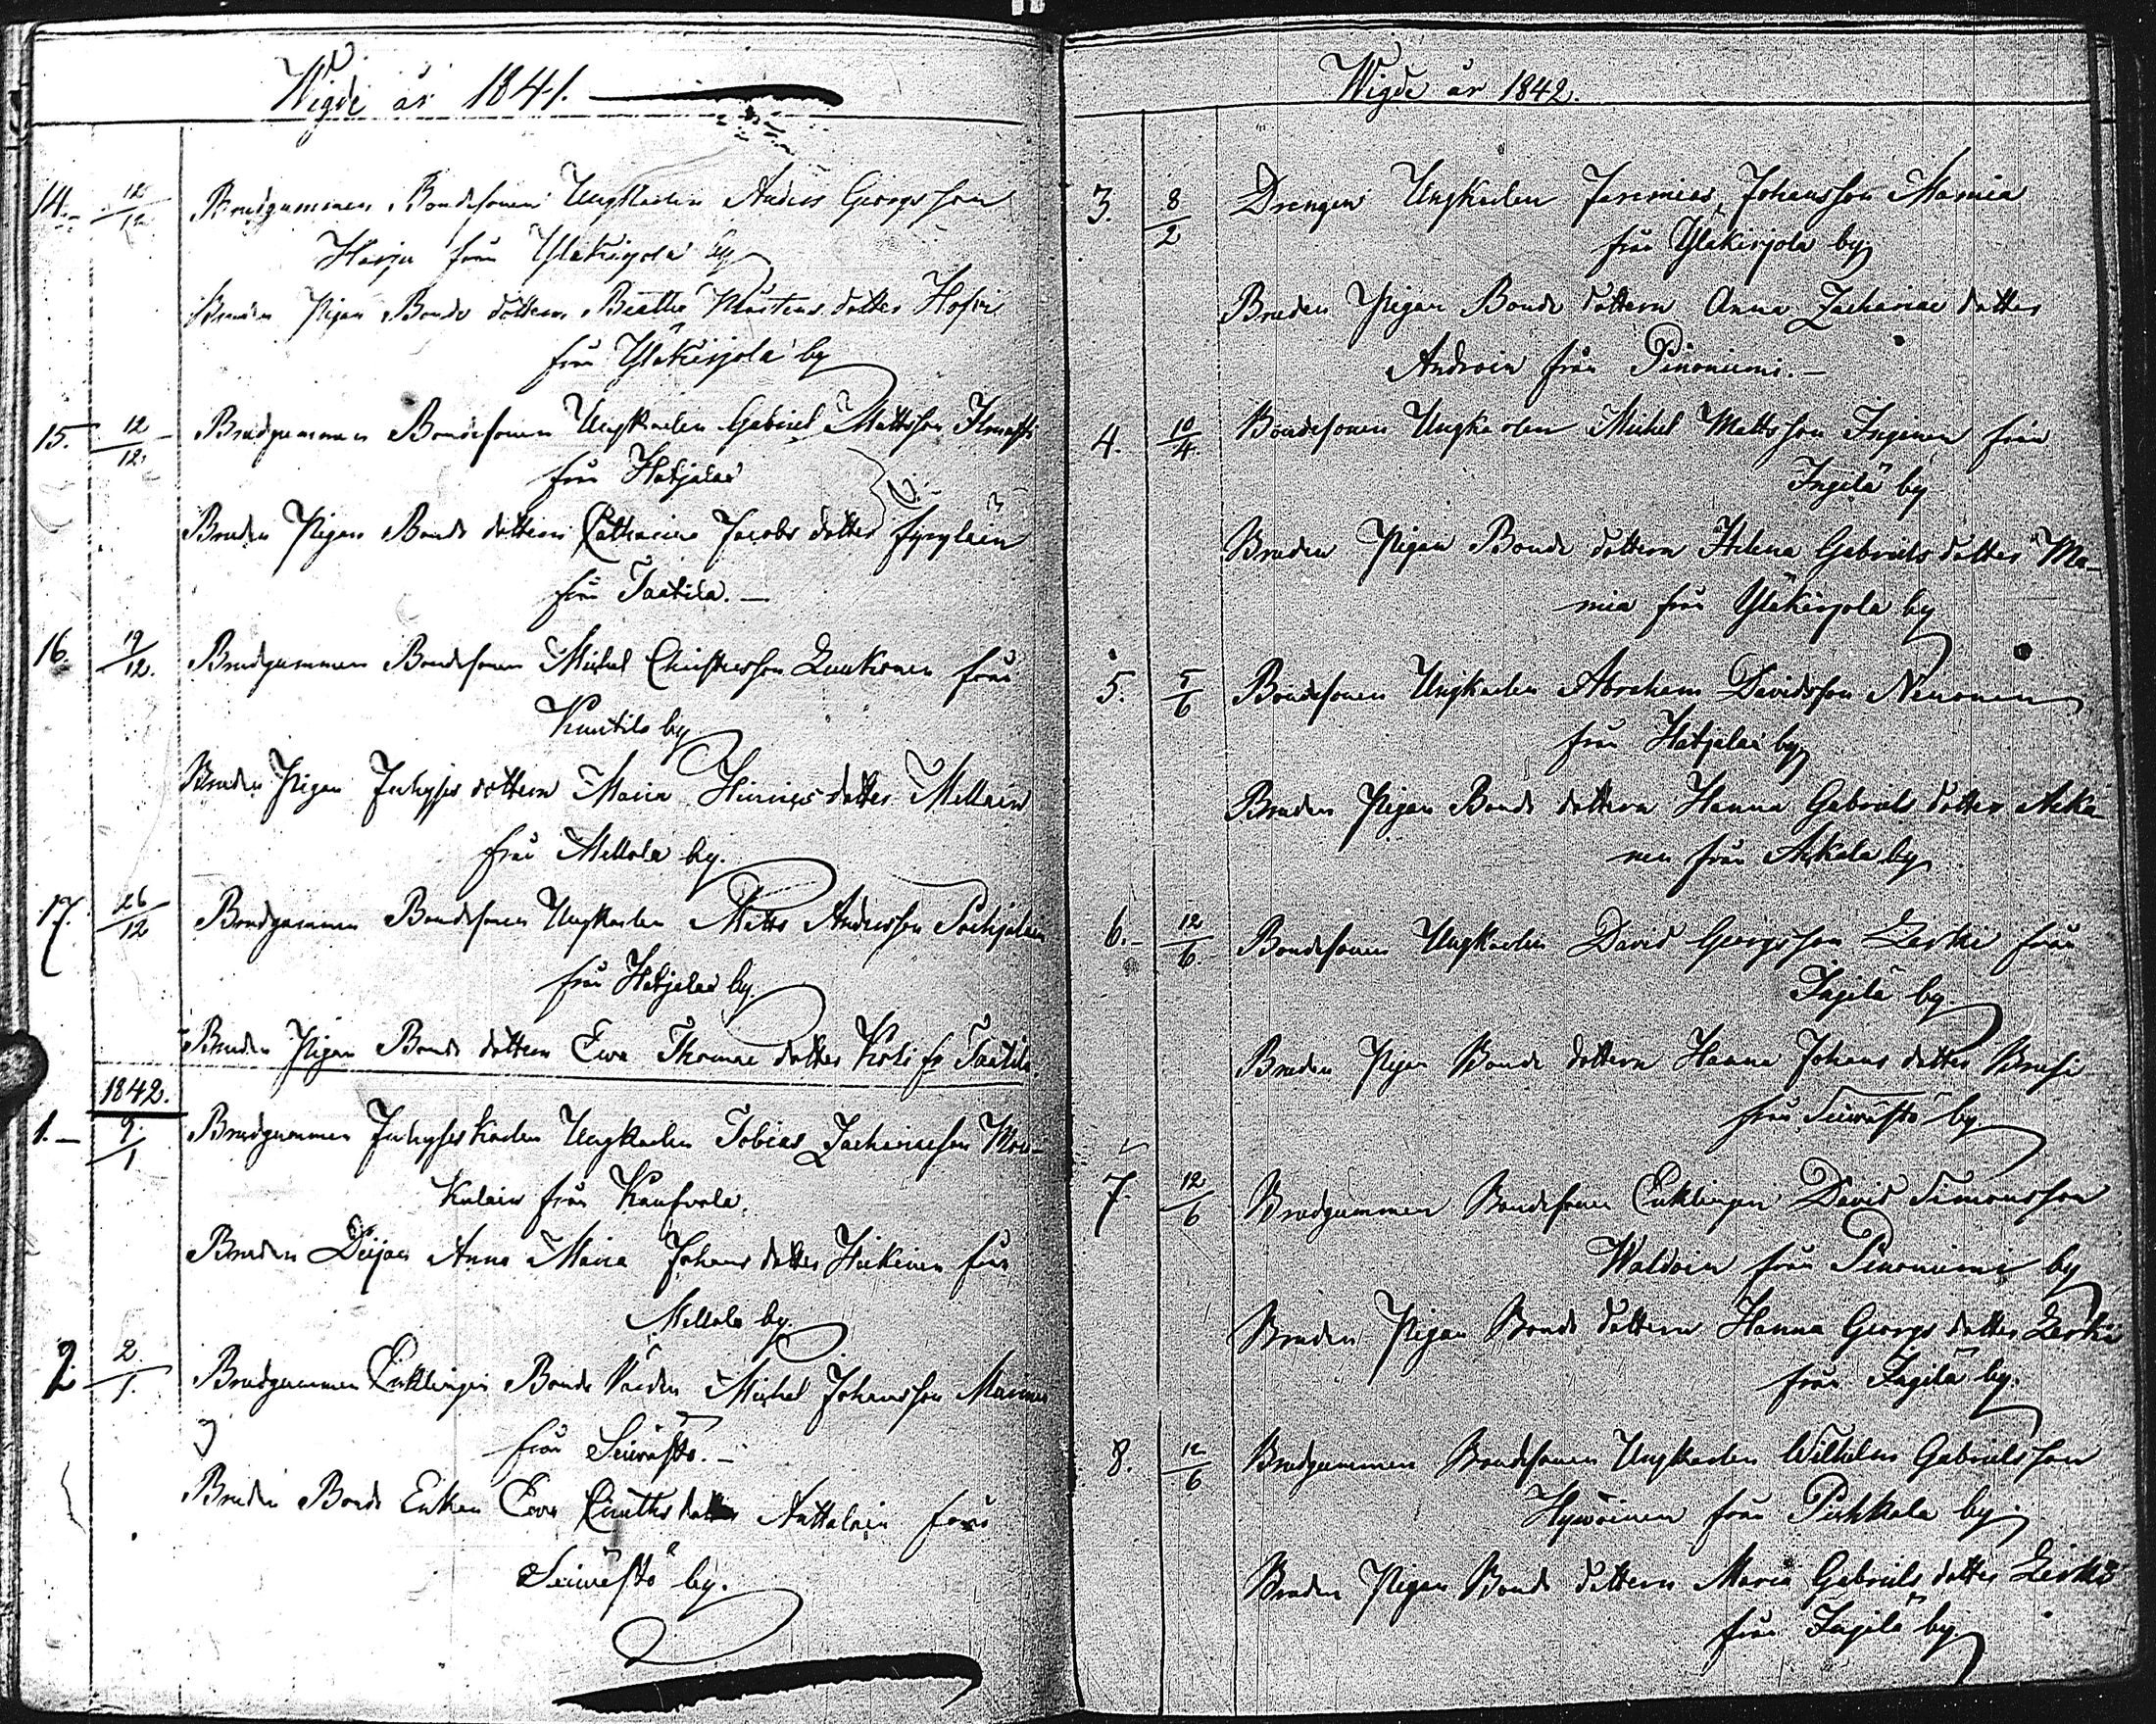 Wigde år 1841.
14. 12/12 Brudgummen Bondesonen Ungkarlen Anders Georgsson
Harju från Yläkirjola by
Bruden Pigan Bonde dottern Beatha Mårtens dotter Hofri
från Yläkirjola by
15. 12/12. Brudgummen Bondesonen Ungkarlen Gabriel Mattsson
från Hatjalax
Bruden Pigan Bonde dottern Catharina Jacobs dotter
från Taatila. —
16. 19/12. Brudgummen Bondesonen Michel Christersson Luukonen från
Kuutila by
Bruden Pigan Inhyses dottern Maria Hinrics dotter Mellain
från Mellola by.
17. 26/12 Brudgummen Bondesonen Ungkarlen Matts Andersson
från Hatjalax by.
Bruden Pigan Bonde dottern Ewa Thomae dotter Koli fr. Taatila
1842.
1. — 9/1 Brudgummen Inhyses karlen Ungkarlen Tobias Zachariaeson
från
Bruden Dejan Anna Maria Johans dotter från
Mellola by.
2 2/1. Brudgummen Enklingen Bonde Michel Johansson
från Seiwästö. —
Bruden Bonde Enkan Ewa dotter från
Seiwästö by.
Wigde år 1842.
3. 8/2 Drengen Ungkarlen Jeremias Johansson Mamia
från Yläkirjola by
Bruden Pigan Bonde dottern Anna Zachariae dotter
Androin från Pinoniemi. —
4. 10/4. Bondesonen Ungkarlen Michel Mattsson Inginen från
Ingilä by
Bruden Pigan Bonde dottern Helena Gabriels dotter Ma-
mia från Yläkirjola by
5. 5/6 Bondesonen Ungkarlen Abraham Davidsson Nenonen
från Hatjalax by
Bruden Pigan Bonde dottern Hanna Gabriels dotter Aska-
nen från Askala by
6. — 12/6. Bondesonen Ungkarlen David Georgsson Leski från
Ingilä by.
Bruden Pigan Bonde dottern Hanna Johans dotter
från Seiwästö by.
7. 12/6 Brudgummen Bondesonen Enklingen David Simonsson
Waldoin från Pinoniemi by
Bruden Pigan Bonde dottern Hanna Georgs dotter Leski
från Ingilä by.
8. 12/6 Brudgummen Bondesonen Ungkarlen Wilhelm Gabrielsson
Hywöinen från Pihkala by
Bruden Pigan Bonde dottern Maria Gabriels dotter Leski
från Ingilä by